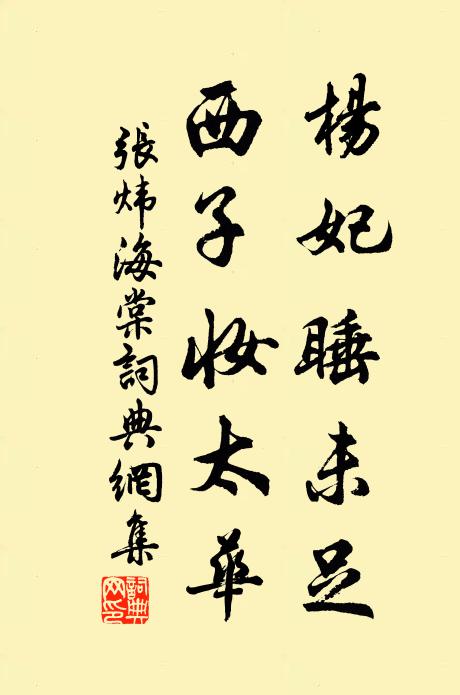 楊妃睡未足
西子妝太華
張炜海棠詞典網集
詞典網印